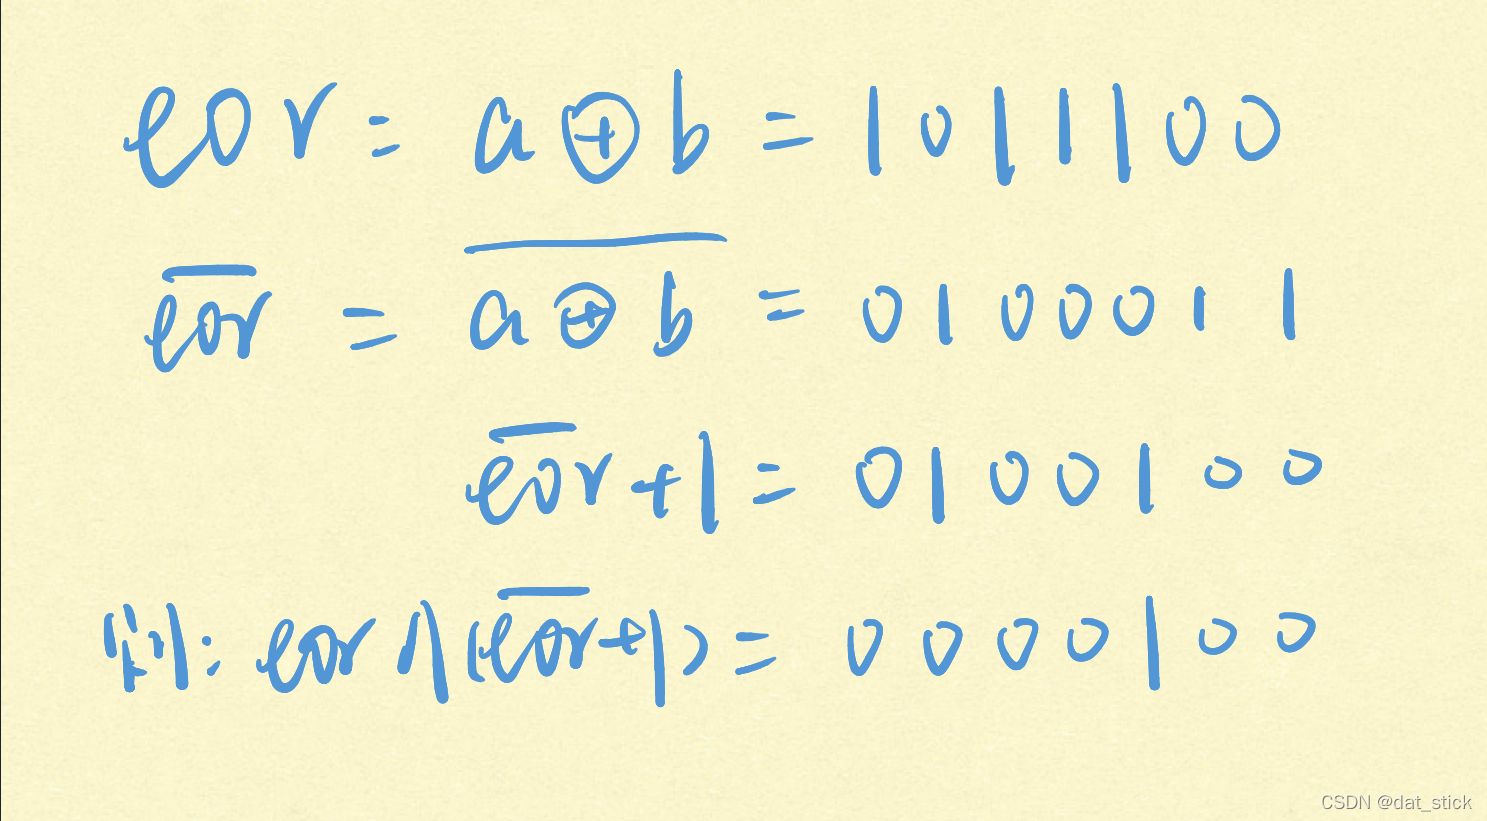 eor = a ⊕ b = 1011100
\overline{eor} = \overline{a ⊕ b} = 0100011
\overline{eor} + 1 = 0100100
则: eor ∧ (\overline{eor} + 1) = 0000100
CSDN @dat_stick